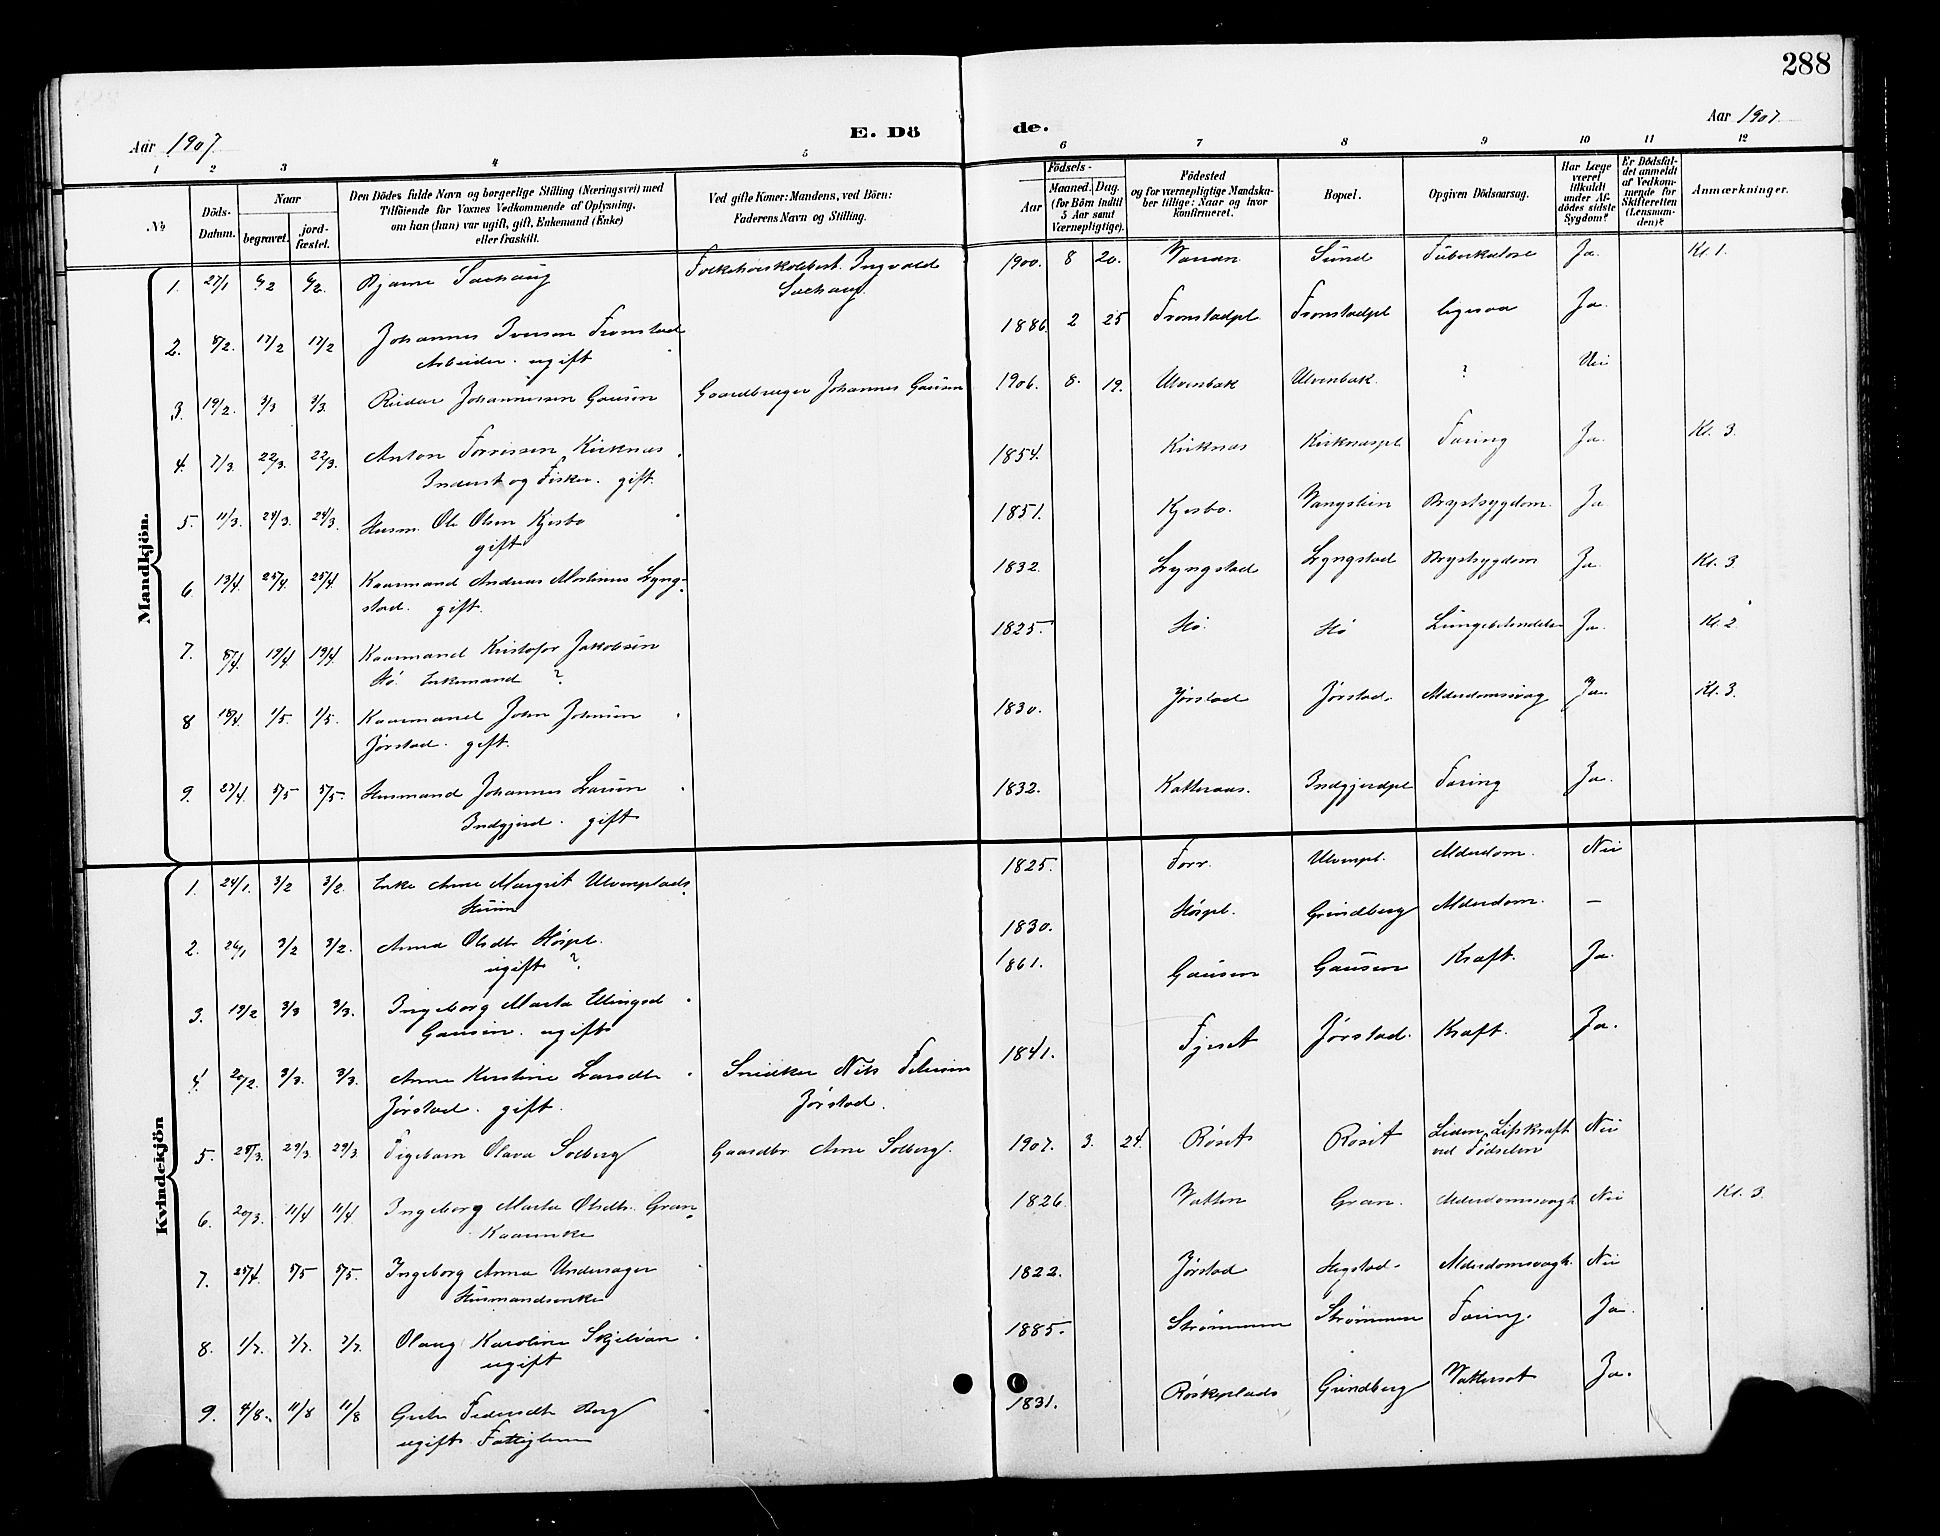 288
Aar 1907.
E. Dö
de.
Aar 1907
1 2 3 4 5 6 7 8 9 10 11 12
№
Döds-
Datum.
Naar
begravet.
jord-
fæstet.
Den Dödes fulde Navn og borgerlige Stilling (Næringsvei) med
Tilföiende for Voxnes Vedkommende af Oplysning,
om han (hun) var ugift, gift, Enkemand (Enke)
eller fraskilt.
Ved gifte Koner: Mandens, ved Börn:
Faderens Navn og Stilling.
Födsels-
Aar
Maaned. Dag.
(for Börn indtil
5 Aar samt
Værnepligtige).
Födested
og for værnepligtige Mandska-
ber tillige: Naar og hvor
konfirmeret.
Bopæl.
Opgiven Dödsaarsag.
Har Læge
været
tilkaldt
under Af-
dödes sidste
Sygdom?
Er Dödsfal-
det anmeldt
af Vedkom-
mende for
Skifteretten
(Lensman-
den)?
Anmærkninger.
Mandkjön.
1. 27/1 6/2 6/2. Bjarne Sakshaug Ingvald 1900. 8 20. Sund Tuberkulose Ja. Kl. 1.
2. 8/2. 17/2 17/2 Johannes Iversen Tronstad 1886. 2 25 Tronstadpl. Tronstadpl ligesaa Ja.
Arbeider. ugift
3. 19/2. 3/3 3/3. Reidar Johannessen Gausen Gaardbruger Johannes Gausen 1906. 8. 19. Ulvenbak Ulvenbak. ? Nei
4. 7/3. 22/3. 22/3. Anton Torrissen Kirknes 1854. Kirknes Kirknespl. Tæring Ja. Kl. 3.
Inderst og Fisker. gift.
5. 11/3. 24/3. 24/3. Husm. Ole Olsen Kjesbo 1851. Kjesbo. Vangstein Brystsygdom. Ja
gift
6. 13/4. 25/4. 25/4 Kaarmand Andreas Martinus Lyng- 1832. Lyngstad Lyngstad Brystsygdom Ja. Kl. 3.
stad. gift.
7. 8/4. 19/4 19/4 Kaarmand Kristofer Jakobsen 1825. Hø. Hø Lungebetændelse Ja. Kl. 2
Hø. Enkemand ?
8 18/4. 1/5. 1/5. Kaarmand John Johnsen 1830. Jørstad Jørstad. Alderdomssvag Ja. Kl. 3.
Jørstad. gift.
9. 27/4 5/5 5/5. Husmand Johannes Larsen 1832. Katteraas. Indgjerdpl Tæring Ja.
Indgjerd. gift
Kvindekjön
1. 24/1. 3/2 3/2. Enke Anne Margrit Ulvenplads 1825. Forr. Ulvenpl. Alderdom. Nei
2. 26/1 3/2 3/2. Anna Olsdtr Høspl. 1830. Høspl. Grindberg Alderdom. —
ugift ?
3. 19/2 3/3 3/3. Ingeborg Marta Ellingsd 1861. Gausen Gausen Kræft. Ja.
Gausen. ugift
4. 20/2. 3/3. 3/3. Anne Kirstine Larsdtr Snedker Nils Petersen 1841. Jørstad. Kræft. Ja.
Jørstad. gift. Jørstad.
5. 28/3. 29/3. 29/3 Pigebarn Olava Solberg Gaardbr. Arne Solberg. 1907. 3. 24. Røset Røset Liden Lifskraft Nei
ved Fødselen
6. 20/3. 11/4 11/4. Ingeborg Marta Olsdtr. Gran 1826. Vatten Gran. Alderdomssvagh Nei Kl. 3.
Kaarenke
7. 25/4. 5/5 5/5. Ingeborg Anna Undersager 1822. Jørstad Hegstad. Alderdomssvagh. Nei
Husmandsenke
8. 1/7. 7/7. 7/7. Olaug Karoline Skjelvan 1885. Strømmen Strømmen Tæring. Ja.
ugift
9. 4/8. 11/8 11/8 Berg 1831. Grindberg Vattersot Ja.
ugift. Fattiglem